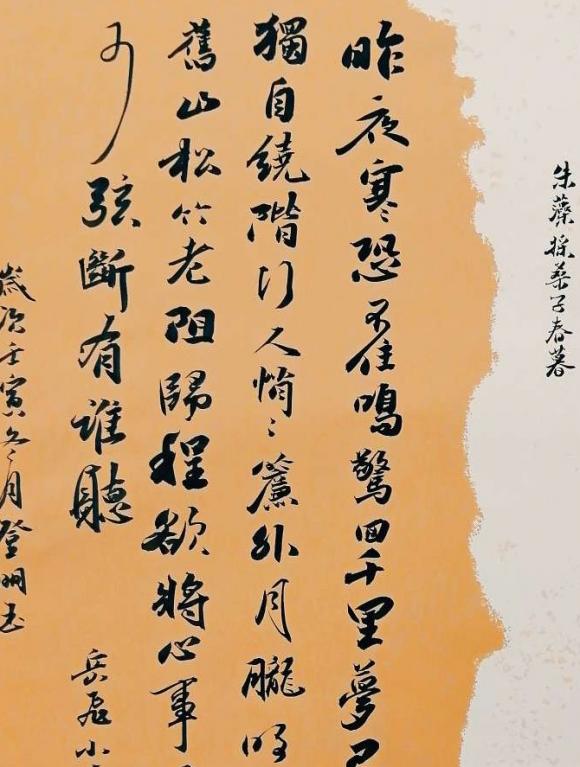 朱藻採桑子春暮
昨夜寒恐不住鳴驚回千里夢
獨自繞階行人悄〻簾外月朧明
舊山松竹老阻歸程欲將心事
少弦斷有誰聽
岳飛小
歲次壬寅冬月登明書